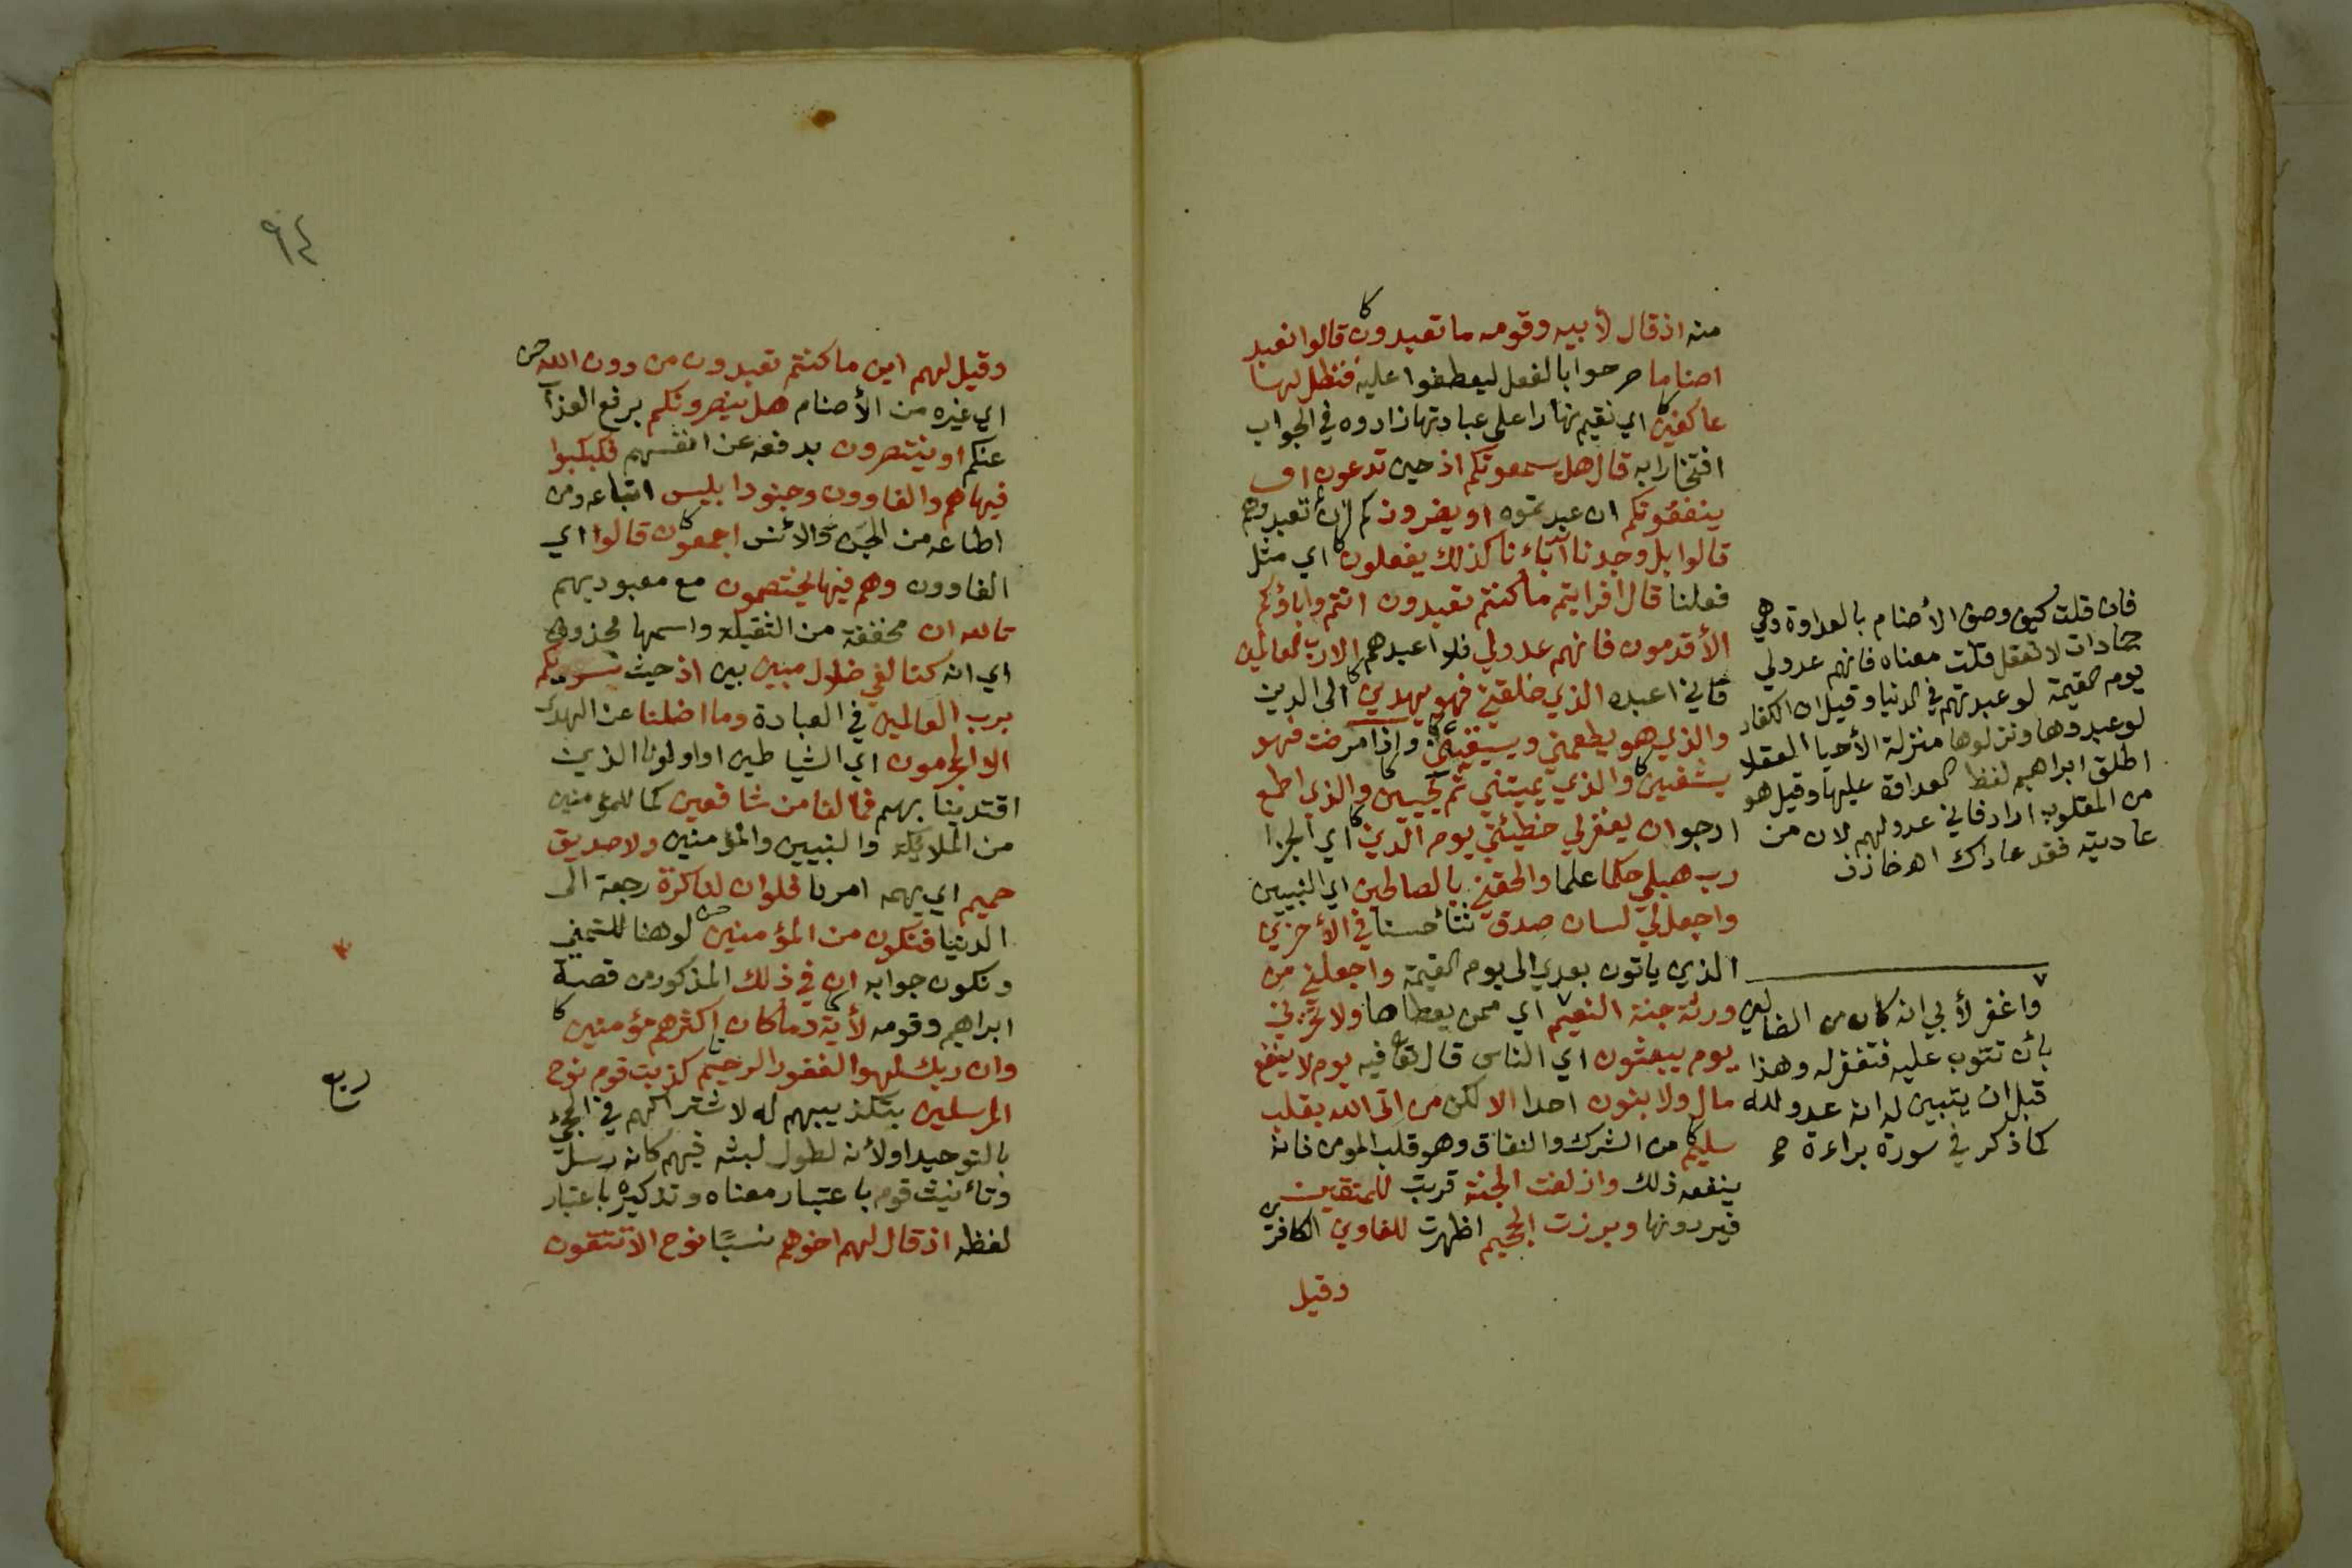 منه اذ قال لأبيه وقومه ما تعبدون قالوا نعبد
اصناما صرحوا بالفعل ليعطفوا عليه فنظل لها
عاكفين اي نقيم نهارا على عبادتها زادوه في الجواب
افتخارا به قال هل يسمعونكم اذ حين تدعون او
ينفعونكم ان عبدتموه او يضرونكم ان لم تعبدوهم
قالوا بل وجدنا آباءنا كذلك يفعلون اي مثل
فعلنا قال افرايتم ما كنتم تعبدون انتم واباؤكم
الأقدمون فانهم عدو لي فلا اعبدهم الا رب العالمين
فاني اعبده الذي خلقني فهو يهدين الى الدين
والذي هو يطعمني ويسقين واذا مرضت فهو
يشفين والذي يميتني ثم يحيين والذي اطمع
ارجو ان يغفر لي خطيئتي يوم الدين اي الجزا
رب هب لي حكما علما والحقني بالصالحين اي النبيين
واجعل لي لسان صدق ثناً حسنا في الأخرين
الذين ياتون بعدي الى يوم القيمة واجعلني من
ورثة جنة النعيم اي ممن يعطاها ولا تخزني
يوم يبعثون اي الناس قال تعا فيه يوم لا ينفع
مال ولا بنون احدا الا لكن من اتى الله بقلب
سليم من الشرك والنفاق وهو قلب المومن فانه
ينفعه ذلك وازلفت الجنة قربت للمتقين
فيردونها وبرزت الجحيم اظهرت للغاوين الكافرين
وقيل
فان قلت كيف وصف الأصنام بالعداوة وهي
جمادات لا تعقل قلت معناه فانهم عدو لي
يوم القيمة لو عبدتهم في الدنيا وقيل ان الكفار
لو عبدوها ونزلوها منزلة الأحيا العقلا
اطلق ابراهيم لفظ العداوة عليها وقيل هو
من المقلوب اراد فاني عدو لهم لان من
عاديته فقد عاداك اه خازن
٧
واغفر لأبي انه كان من الضالين
بأن تتوب عليه فتغفر له وهذا
قبل ان يتبين له انه عدو لله
كما ذكر في سورة براءة صح
٩٤
وقيل لهم اين ما كنتم تعبدون من دون الله
اي غيره من الأصنام هل ينصرونكم برفع العذاب
عنكم او ينتصرون بدفعه عن انفسهم فكبكبوا
فيها هم والغاوون وجنود ابليس اتباعه ومن
اطاعه من الجن والانس اجمعون قالوا اي
الغاوون وهم فيها يختصمون مع معبوديهم
تالله ان مخففة من الثقيلة واسمها محذوف
اي انه كنا لفي ضلال مبين بين اذ حيث نسويكم
برب العالمين في العبادة وما اضلنا عن الهدى
الا المجرمون اي الشياطين او اولونا الذين
اقتدينا بهم فما لنا من شافعين كما للمؤمنين
من الملايكة والنبيين والمؤمنين ولا صديق
حميم اي يهمه امرنا فلو ان لنا كرة رجعة الى
الدنيا فنكون من المؤمنين لو هنا للتمني
ونكون جوابه ان في ذلك المذكور من قصة
ابراهيم وقومه لأية وما كان اكثرهم مؤمنين
وان ربك لهو الغفور الرحيم كذبت قوم نوح
المرسلين بتكذيبهم له لاشتراكهم في المجئ
بالتوحيد او لأنه لطول لبثه فيهم كانه رسل
وتأنيث قوم باعتبار معناه وتذكيره باعتبار
لفظه اذ قال لهم اخوهم نسبًا نوح الا تتقون
ربع